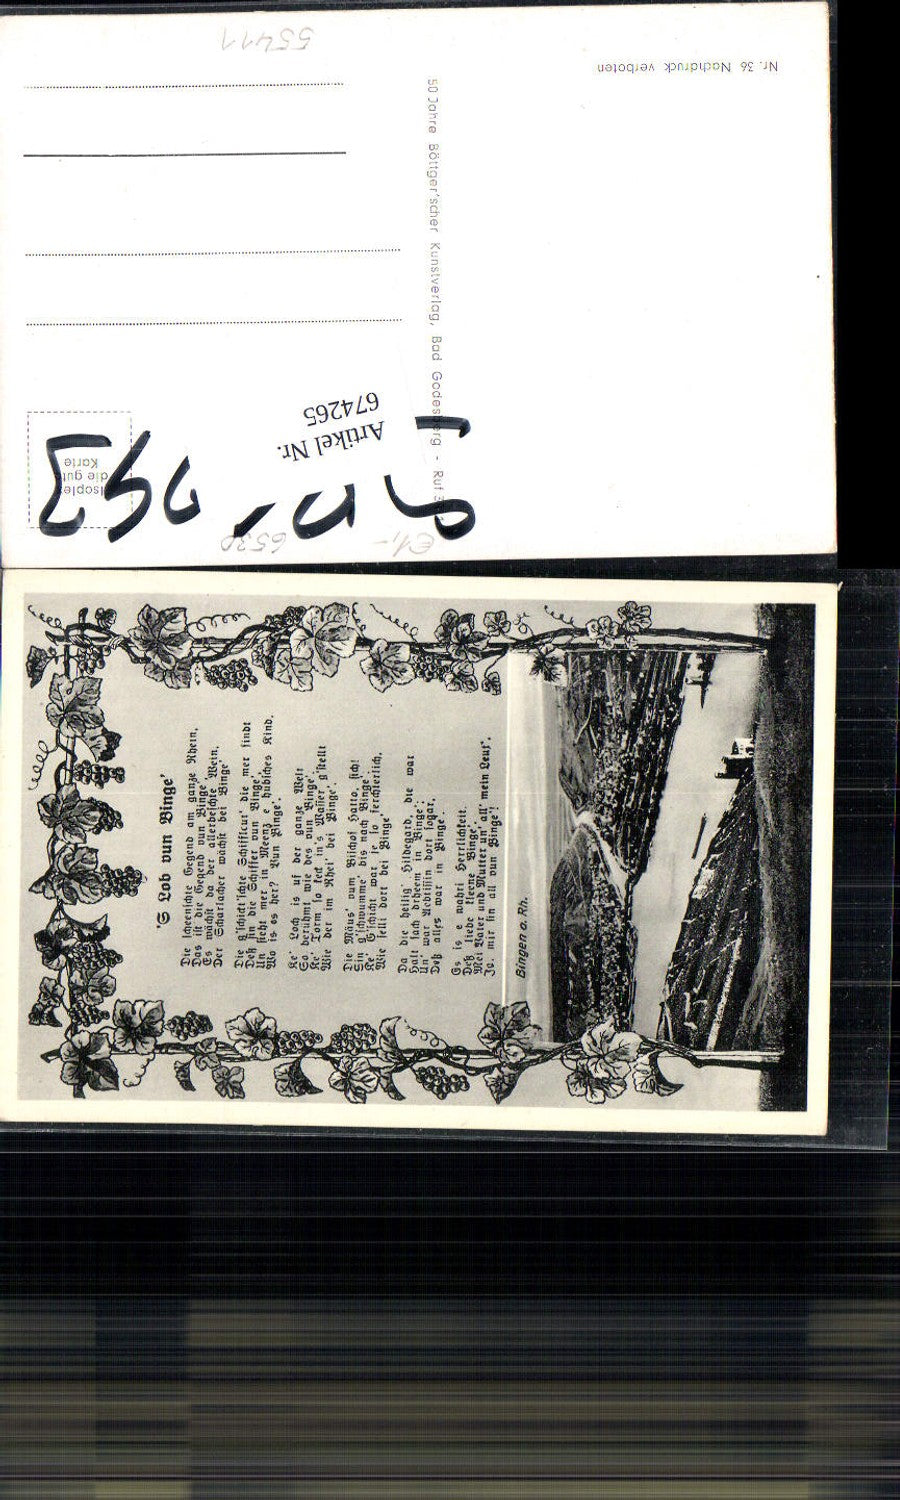 55411
Nr. 36 Nachdruck verboten
50 Jahre Böttger'scher Kunstverlag, Bad Godesberg - Ruf
Artikel Nr.
674265
die gute
Karte
6530
€1,-
'S Lob vun Binge'
Die scheenichte Gegend am ganze Rhein,
Das ist die Gegend vun Binge'
Es wächst da der allerbeschte Wein,
Der Scharlacher wächst bei Binge'
Die g'schickt'schte Schiffleut' die mer findt
Deß sin die Schiffer vun Binge'.
Un sieht mer in Meenz e hübsches Kind.
Wo is es her? Vun Binge'.
Ke' Loch is uf der ganze Welt
So berühmt wie des vun Binge'.
Ke' Torm so keck in's Wasser g'stellt
Wie der im Rhei' bei Binge'.
Die Mäus' vum Bischof Hatto, sich!
Sin g'schwumme' bis nach Binge'.
Ke' G'schicht war je so ferchterlich,
Wie selli dort bei Binge'
Da die heilig' Hildegard, die war
Halt sach drheem in Binge';
Un' war Aebtissin dort sogar,
Deß alles war in Binge'.
Es is e wahri Herrlichkeit
Deß liebe kleene Binge'.
Mei Vater und Mutter un' all' mein Leut'.
Ja, mir sin all vun Binge'!
Bingen a. Rh.